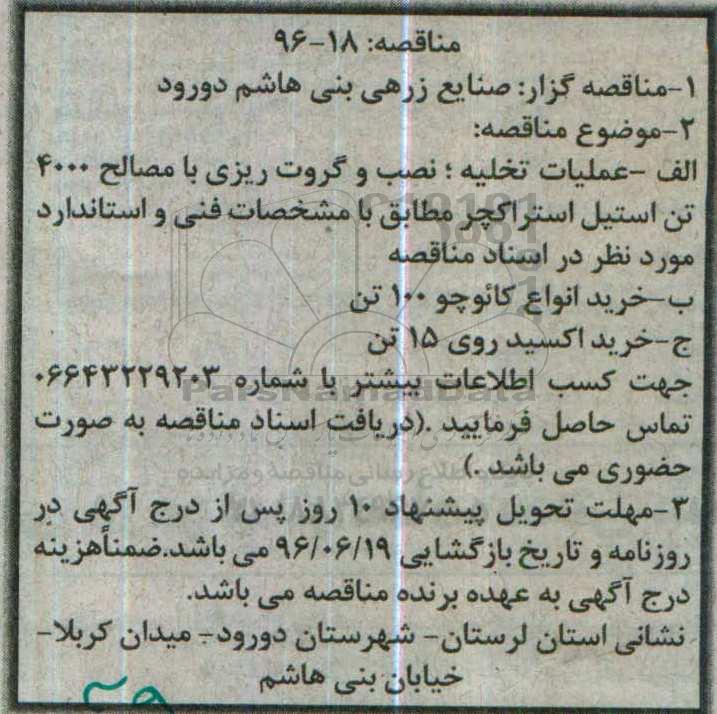 مناقصه: ۱۸-۹۶
۱-مناقصه گزار: صنایع زرهی بنی هاشم دورود
۲-موضوع مناقصه:
الف -عملیات تخلیه ؛ نصب و گروت ریزی با مصالح ۴۰۰۰
تن استیل استراکچر مطابق با مشخصات فنی و استاندارد
مورد نظر در اسناد مناقصه
ب-خرید انواع کائوچو ۱۰۰ تن
ج-خرید اکسید روی ۱۵ تن
جهت کسب اطلاعات بیشتر با شماره ۰۶۶۴۳۲۲۹۲۰۳
ParsNamadData
تماس حاصل فرمایید .(دریافت اسناد مناقصه به صورت
حضوری می باشد .)
۳-مهلت تحویل پیشنهاد ۱۰ روز پس از درج آگهی در
روزنامه و تاریخ بازگشایی ۹۶/۰۶/۱۹ می باشد.ضمناًهزینه
درج آگهی به عهده برنده مناقصه می باشد.
نشانی استان لرستان- شهرستان دورود- میدان کربلا-
خیابان بنی هاشم